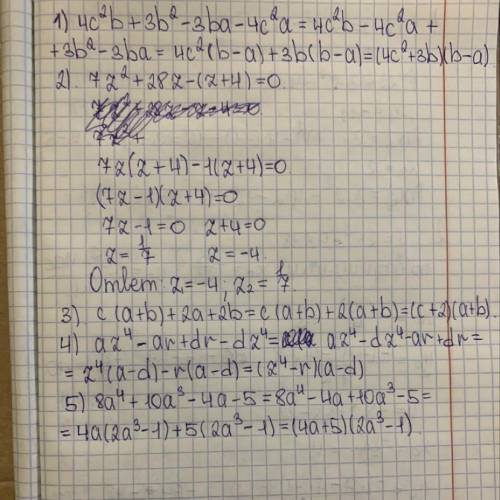 1) 4c²b + 3b² - 3ba - 4c²a = 4c²b - 4c²a +
+ 3b² - 3ba = 4c²(b-a) + 3b(b-a) = (4c²+3b)(b-a)
2) 7z² + 28z - (z+4) = 0
7z(z+4) - 1(z+4) = 0
(7z-1)(z+4) = 0
7z-1 = 0 z+4 = 0
z = 1/7 z = -4
Ответ: z = -4; z₂ = 1/7.
3) c(a+b) + 2a + 2b = c(a+b) + 2(a+b) = (c+2)(a+b).
4) az⁴ - ar + dr - dz⁴ = az⁴ - dz⁴ - ar + dr =
= z⁴(a-d) - r(a-d) = (z⁴-r)(a-d)
5) 8a⁴ + 10a³ - 4a - 5 = 8a⁴ - 4a + 10a³ - 5 =
= 4a(2a³-1) + 5(2a³-1) = (4a+5)(2a³-1).